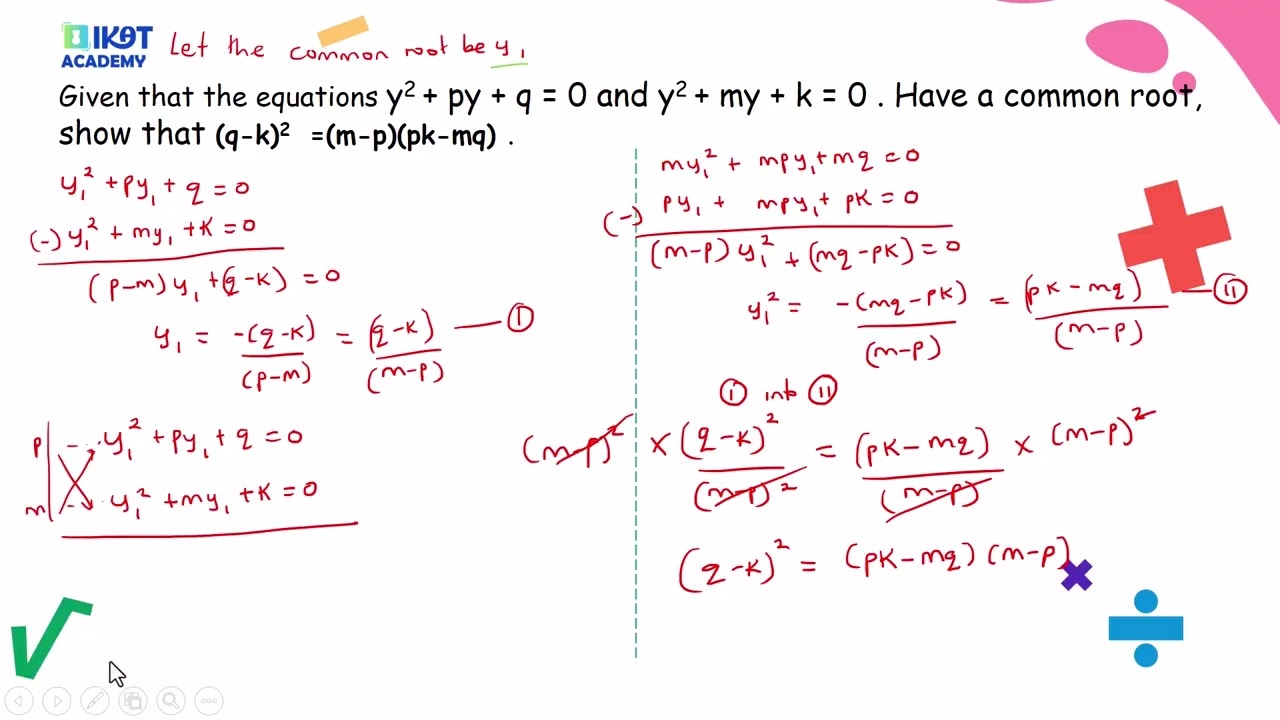 IKOT
ACADEMY
Let the common root be y₁
Given that the equations y² + py + q = 0 and y² + my + k = 0 . Have a common root,
show that (q-k)² =(m-p)(pk-mq) .
y₁² + py₁ + q = 0
(-) y₁² + my₁ + k = 0
(p-m) y₁ + (q-k) = 0
y₁ = -(q-k)/(p-m) = (q-k)/(m-p) — Ⓘ
p - y₁² + py₁ + q = 0
m - y₁² + my₁ + k = 0
my₁² + mpy₁ + mq = 0
(-) py₁ + mpy₁ + pk = 0
(m-p) y₁² + (mq-pk) = 0
y₁² = -(mq-pk)/(m-p) = (pk-mq)/(m-p) — ⓘⓘ
Ⓘ into ⓘⓘ
(m-p)² × (q-k)²/(m-p)² = (pk-mq)/(m-p) × (m-p)²
(q-k)² = (pk-mq)(m-p)